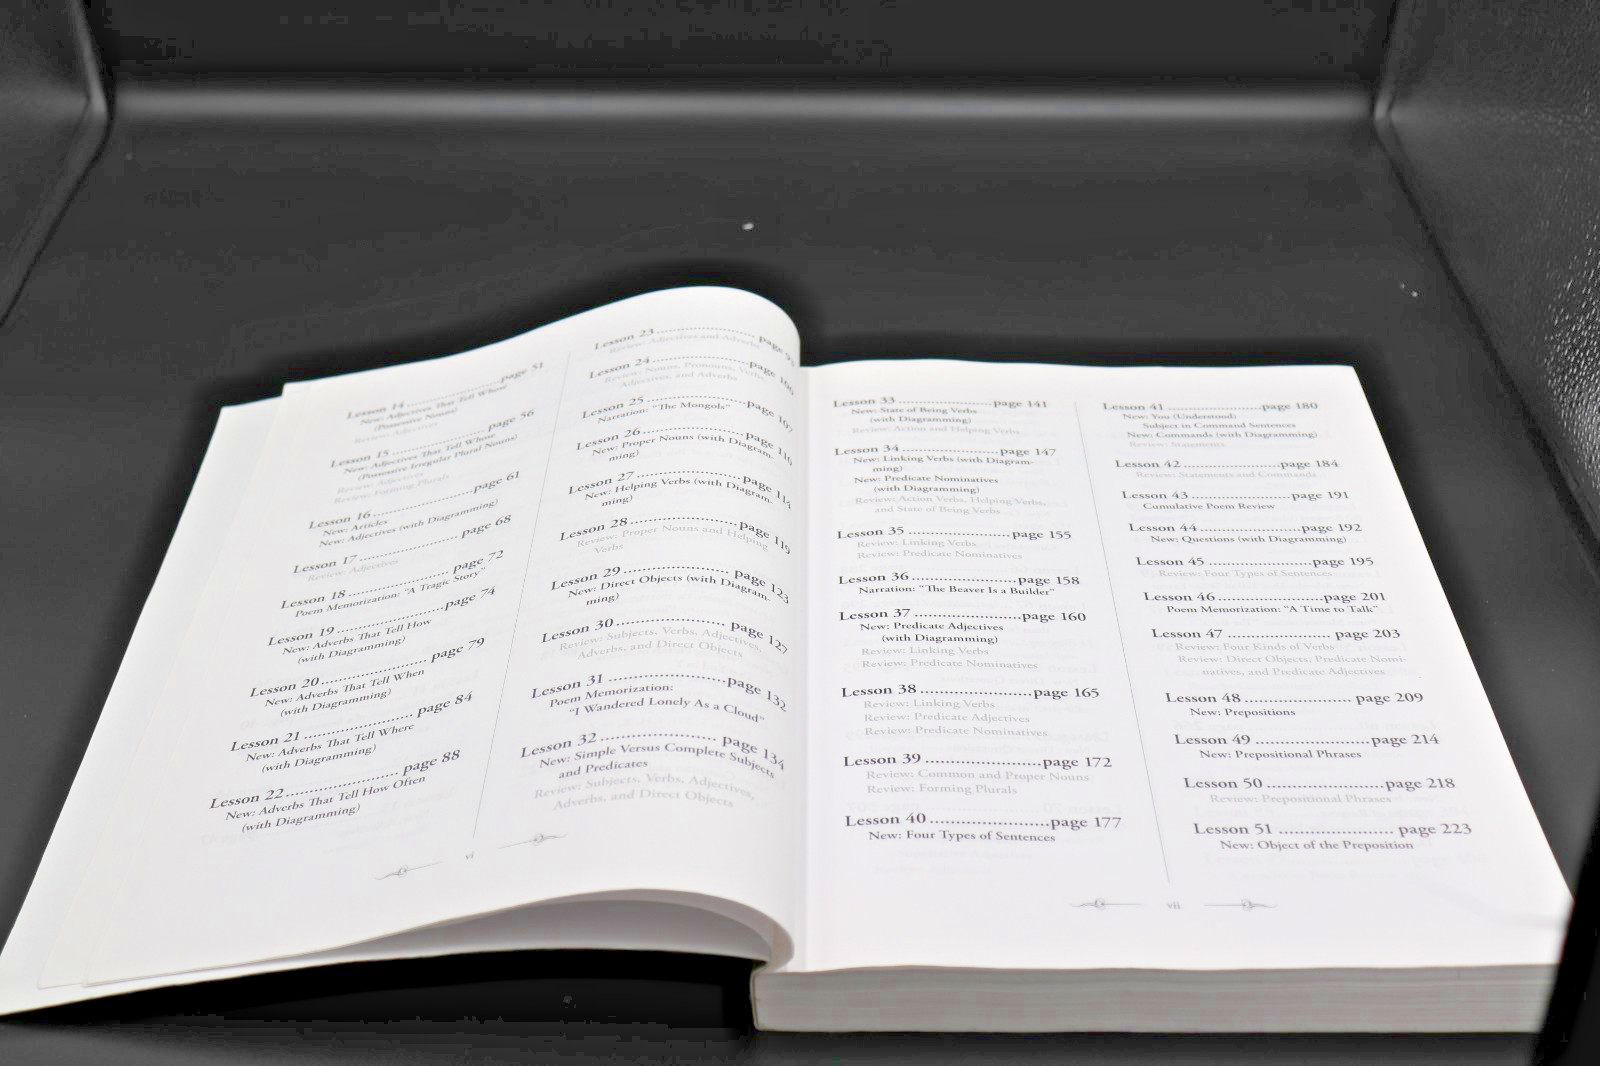 Lesson 14 .................... page 51
New: Adjectives That Tell Whose
(Possessive Nouns)
Review: Adjectives
Lesson 15 .................... page 56
New: Adjectives That Tell Whose
(Possessive Irregular Plural Nouns)
Review: Adjectives
Review: Forming Plurals
Lesson 16 .................... page 61
New: Articles
New: Adjectives (with Diagramming)
Lesson 17 .................... page 68
Review: Adjectives
Lesson 18 .................... page 72
Poem Memorization: “A Tragic Story”
Lesson 19 .................... page 74
New: Adverbs That Tell How
(with Diagramming)
Lesson 20 .................... page 79
New: Adverbs That Tell When
(with Diagramming)
Lesson 21 .................... page 84
New: Adverbs That Tell Where
(with Diagramming)
Lesson 22 .................... page 88
New: Adverbs That Tell How Often
(with Diagramming)
Lesson 23 .................... page
Review: Adjectives and Adverbs
Lesson 24 .................... page 100
Review: Nouns, Pronouns, Verbs,
Adjectives, and Adverbs
Lesson 25 .................... page 107
Narration: “The Mongols”
Lesson 26 .................... page 110
New: Proper Nouns (with Diagram-
ming)
Lesson 27 .................... page 114
New: Helping Verbs (with Diagram-
ming)
Lesson 28 .................... page 119
Review: Proper Nouns and Helping
Verbs
Lesson 29 .................... page 123
New: Direct Objects (with Diagram-
ming)
Lesson 30 .................... page 127
Review: Subjects, Verbs, Adjectives,
Adverbs, and Direct Objects
Lesson 31 .................... page 132
Poem Memorization:
“I Wandered Lonely As a Cloud”
Lesson 32 .................... page 134
New: Simple Versus Complete Subjects
and Predicates
Review: Subjects, Verbs, Adjectives,
Adverbs, and Direct Objects
vi
Lesson 33 .................... page 141
New: State of Being Verbs
(with Diagramming)
Review: Action and Helping Verbs
Lesson 34 .................... page 147
New: Linking Verbs (with Diagram-
ming)
New: Predicate Nominatives
(with Diagramming)
Review: Action Verbs, Helping Verbs,
and State of Being Verbs
Lesson 35 .................... page 155
Review: Linking Verbs
Review: Predicate Nominatives
Lesson 36 .................... page 158
Narration: “The Beaver Is a Builder”
Lesson 37 .................... page 160
New: Predicate Adjectives
(with Diagramming)
Review: Linking Verbs
Review: Predicate Nominatives
Lesson 38 .................... page 165
Review: Linking Verbs
Review: Predicate Adjectives
Review: Predicate Nominatives
Lesson 39 .................... page 172
Review: Common and Proper Nouns
Review: Forming Plurals
Lesson 40 .................... page 177
New: Four Types of Sentences
Lesson 41 .................... page 180
New: You (Understood)
Subject in Command Sentences
New: Commands (with Diagramming)
Review: Statements
Lesson 42 .................... page 184
Review: Statements and Commands
Lesson 43 .................... page 191
Cumulative Poem Review
Lesson 44 .................... page 192
New: Questions (with Diagramming)
Lesson 45 .................... page 195
Review: Four Types of Sentences
Lesson 46 .................... page 201
Poem Memorization: “A Time to Talk”
Lesson 47 .................... page 203
Review: Four Kinds of Verbs
Review: Direct Objects, Predicate Nomi-
natives, and Predicate Adjectives
Lesson 48 .................... page 209
New: Prepositions
Lesson 49 .................... page 214
New: Prepositional Phrases
Lesson 50 .................... page 218
Review: Prepositional Phrases
Lesson 51 .................... page 223
New: Object of the Preposition
vii